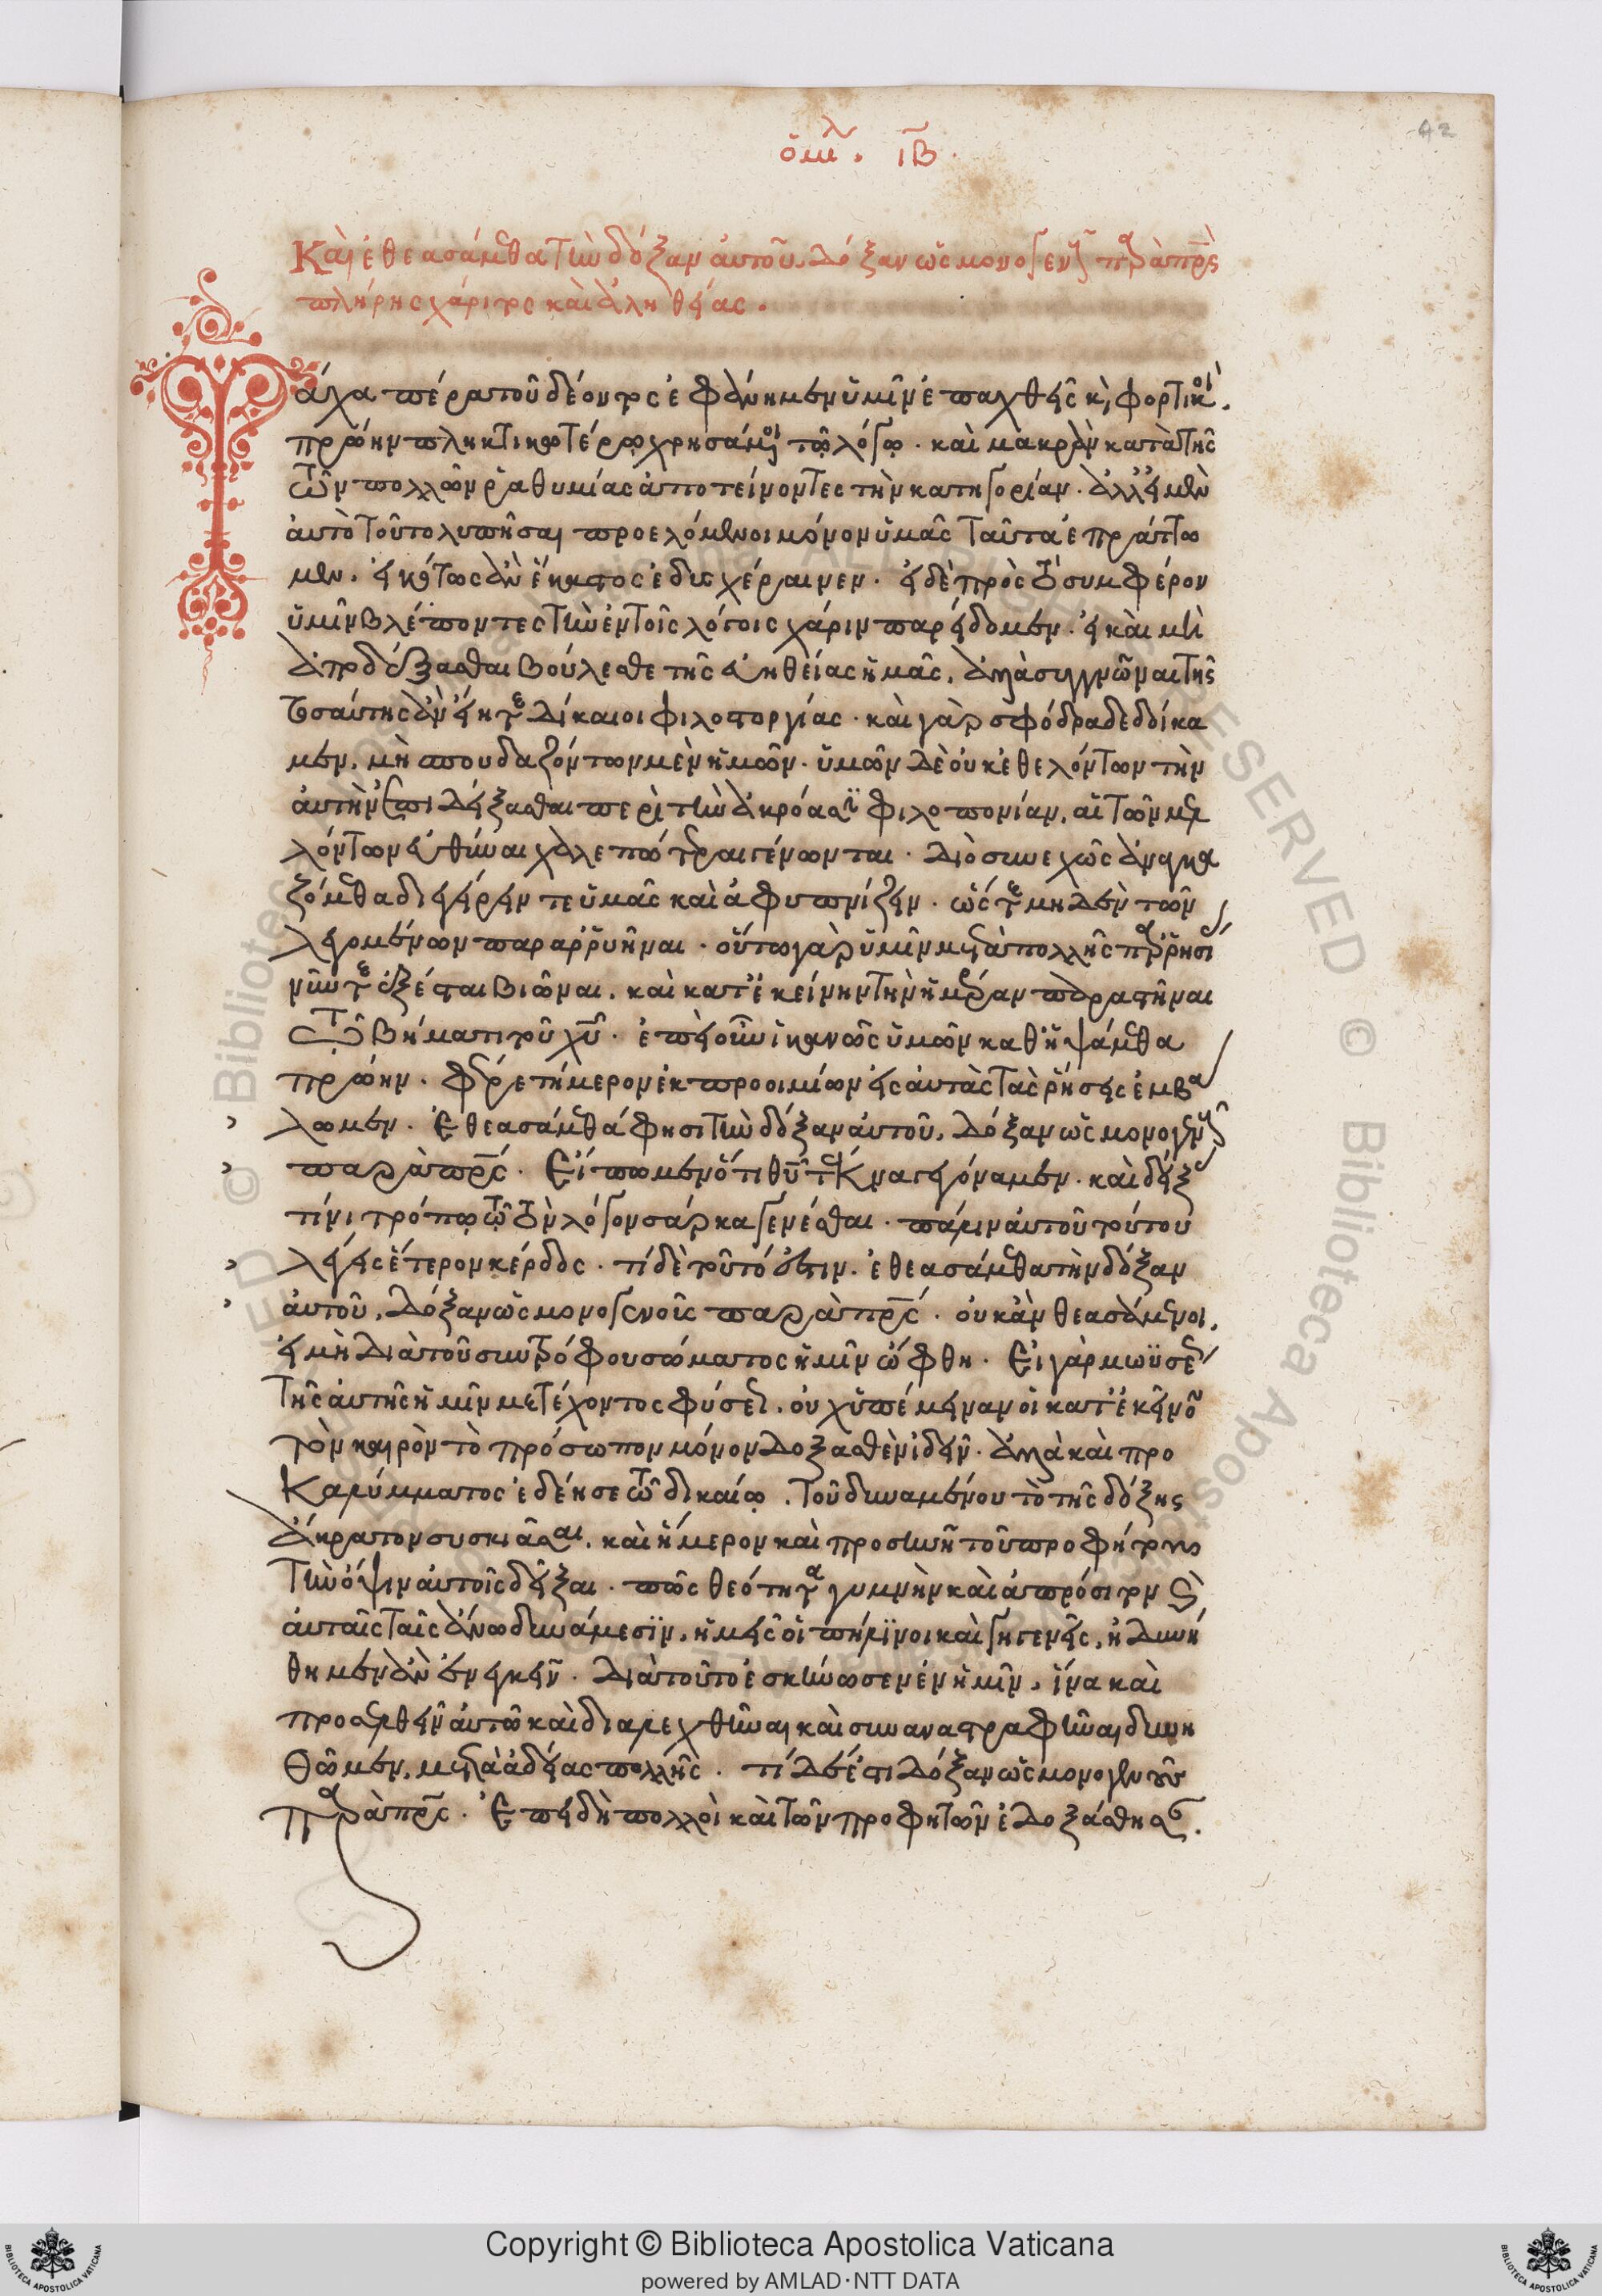 42
ὁμλ. ιβ.
Καὶ ἐθεασάμεθα τὴν δόξαν αὐτοῦ, δόξαν ὡς μονογενοῦς παρὰ πρς
πλήρης χάριτος καὶ ἀληθείας.
Τάχα πέρα τοῦ δέοντος ἐφάνημεν ὑμῖν ἐπαχθεῖς κ φορτικοί.
πρώην πληκτικωτέρῳ χρησάμενοι τῷ λόγῳ. καὶ μακρὰν κατὰ τῆς
τῶν πολλῶν ῥαθυμίας ἀποτείνοντες τὴν κατηγορίαν. ἀλλ' εἰ μὲν
αὐτὸ τοῦτο λυπῆσαι προελόμενοι μόνον ὑμᾶς ταῦτα ἐπράττο
μεν. εἰκότως ἂν ἕκαστος ἐδυσχέραινεν. εἰ δὲ πρὸς τὸ συμφέρον
ὑμῖν βλέποντες τὴν ἐν τοῖς λόγοις χάριν παρείδομεν. εἰ καὶ μὴ
ἀποδέξασθαι βούλεσθε τῆς εὐηθείας ἡμᾶς, ἀλλὰ συγγνῶναι τῆς
τοσαύτης ἂν εἴητε δίκαιοι φιλοστοργίας. καὶ γὰρ σφόδρα δεδοίκα
μεν. μὴ σπουδαζόντων μὲν ἡμῶν. ὑμῶν δὲ οὐκ ἐθελόντων τὴν
αὐτὴν ἐπιδείξασθαι περὶ τὴν ἀκρόασιν φιλοπονίαν. αἱ τῶν μελ
λόντων εὐθύναι χαλεπώτεραι γένωνται. διὸ συνεχῶς ἀναγκα
ζόμεθα διεγείρειν τε ὑμᾶς καὶ ἀφυπνίζειν. ὥστε μηδὲν τῶν
λεγομένων παραρρυῆναι. οὕτω γὰρ ὑμῖν μετὰ πολλῆς παρρησί
νῦν τε ἐξέσται βιῶναι. καὶ κατ' ἐκείνην τὴν ἡμέραν παραστῆναι
τῷ βήματι τοῦ χυ. ἐπεὶ οὖν ἱκανῶς ὑμῶν καθηψάμεθα
πρώην. φέρε τήμερον ἐκ προοιμίων εἰς αὐτὰς τὰς ῥήσεις ἐμβά
λωμεν. Ἐθεασάμεθά φησι τὴν δόξαν αὐτοῦ, δόξαν ὡς μονογενοῦς
παρὰ πρς. Εἰπὼμεν ὅτι θυ τέκνα γεγόναμεν. καὶ δείξ
τίνι τρόπῳ τῷ τὸν λόγον σάρκα γενέσθαι. πάλιν αὐτοῦ τούτου
λέγεις ἕτερον κέρδος. τί δὲ τοῦτό ἐστιν. ἐθεασάμεθα τὴν δόξαν
αὐτοῦ, δόξαν ὡς μονογενοῦς παρὰ πρς. οὐκ ἂν θεασάμενοι,
εἰ μὴ διὰ τοῦ συντρόφου σώματος ἡμῖν ὤφθη. Εἰ γὰρ μωϋσέ
τῆς αὐτῆς ἡμῖν μετέχοντος φύσει. οὐχ ὑπέμειναν οἱ κατ' ἐκεῖνο
τὸν καιρὸν τὸ πρόσωπον μόνον δοξασθὲν ἰδεῖν. ἀλλὰ καὶ προ
καλύμματος ἐδέησε τῷ δικαίῳ. τοῦ δυναμένου τὸ τῆς δόξης
ἄκρατον συσκιάσαι. καὶ ἥμερον καὶ προσηνῆ τοῦ προφήτου
τὴν ὄψιν αὐτοῖς δεῖξαι. πῶς θεότητα γυμνὴν καὶ ἀπρόσιτον καὶ
αὐταῖς ταῖς ἄνω δυνάμεσϊν. ἡμεῖς οἱ πήλϊνοι καὶ γηγενεῖς, ἠδυνή
θημεν ἂν ἐνεγκεῖν. διὰ τοῦτο ἐσκήνωσεν ἐν ἡμῖν. ἵνα καὶ
προσελθεῖν αὐτῶ καὶ διαλεχθῆναι καὶ συναναστραφῆναι δυνη
θῶμεν. μετὰ ἀδείας πολλῆς. τί δέ ἐστι δόξαν ὡς μονογενοῦς
παρὰ πρς. Ἐπειδὴ πολλοὶ καὶ τῶν προφητῶν ἐδοξάσθησαν.
Copyright © Biblioteca Apostolica Vaticana
powered by AMLAD·NTT DATA